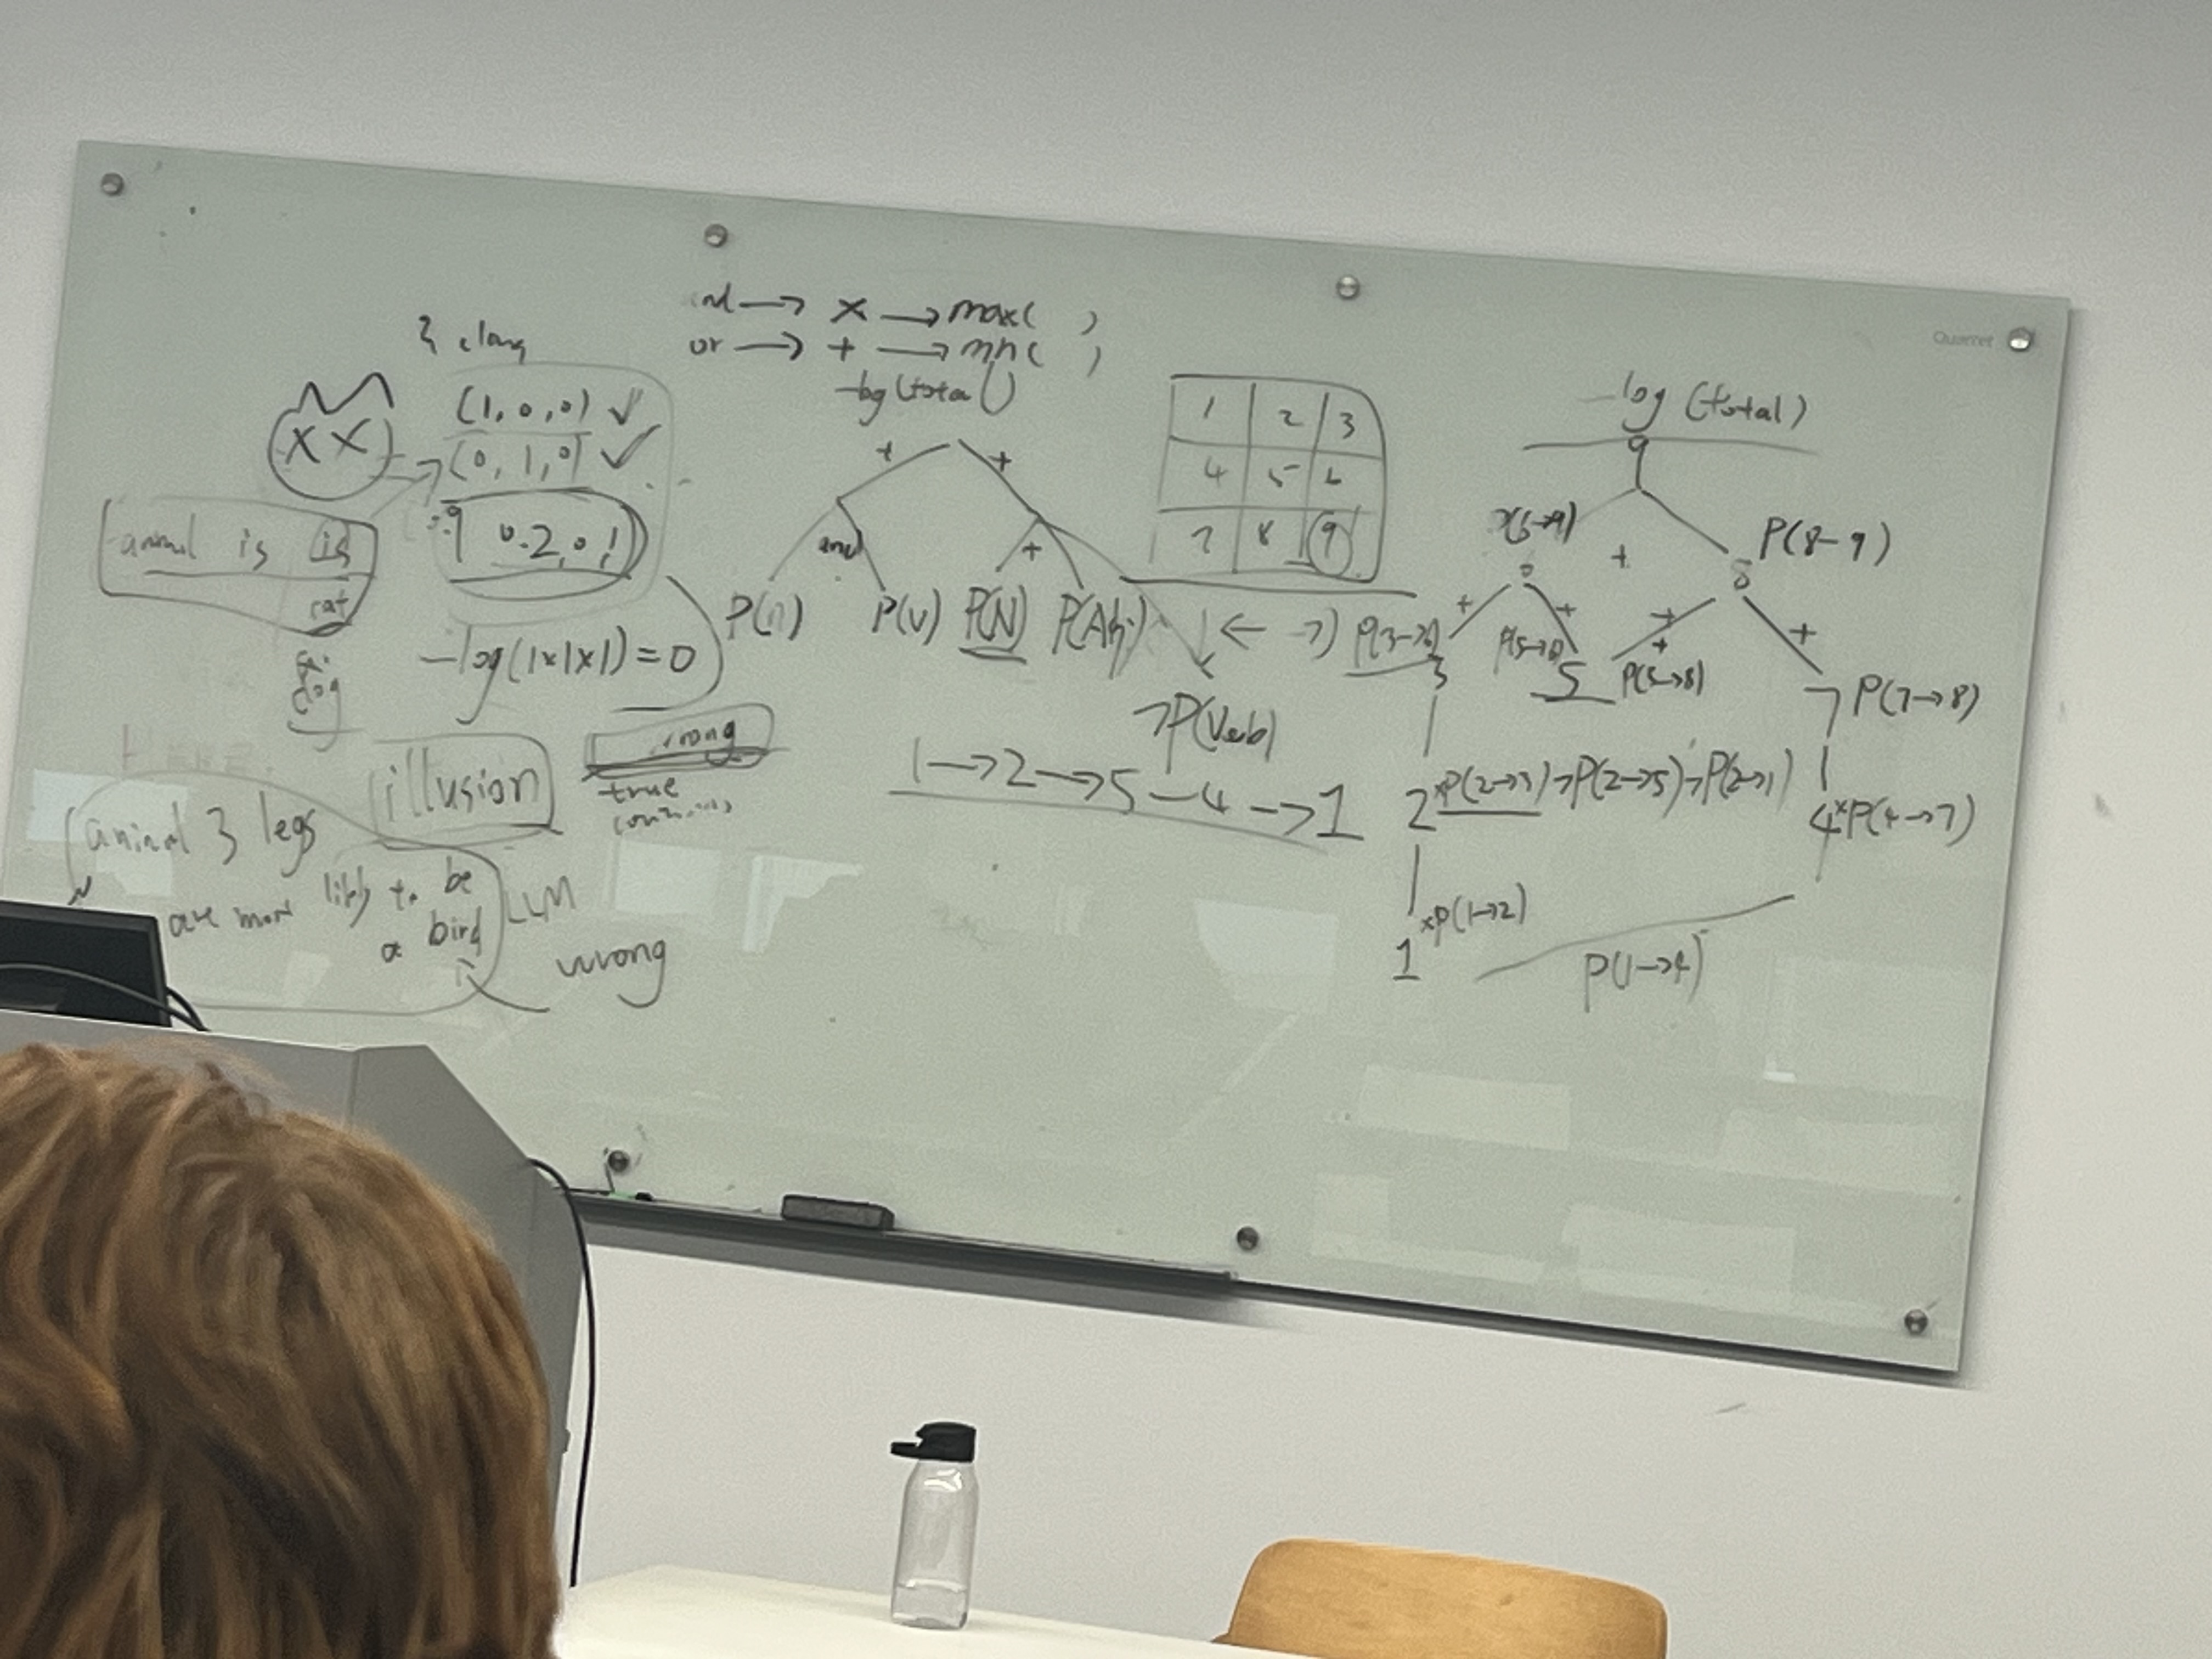 → × → max( )
or → + → min( )
-log(total)
(1, 0, 0) ✓
(0, 1, 0) ✓
0.2, 0.1
X X
animal is is
cat
dog
-log(1×1×1) = 0
+ +
and +
P(n) P(v) P(N) P(Adj)
¬P(Verb)
1 2 3
4 5 6
7 8 9
1 → 2 → 5 - 4 → 1
illusion
wrong
true
animal 3 legs
are more likely to be
a bird
LLM
wrong
Quartet
-log (total)
9
P(8-9)
+
8
+ + + +
P(5→8)
3 5 7 P(7→8)
2 ×P(2→3) ¬P(2→5) ¬P(2→1)
4 ×P(4→7)
×P(1→2)
1
P(1→4)